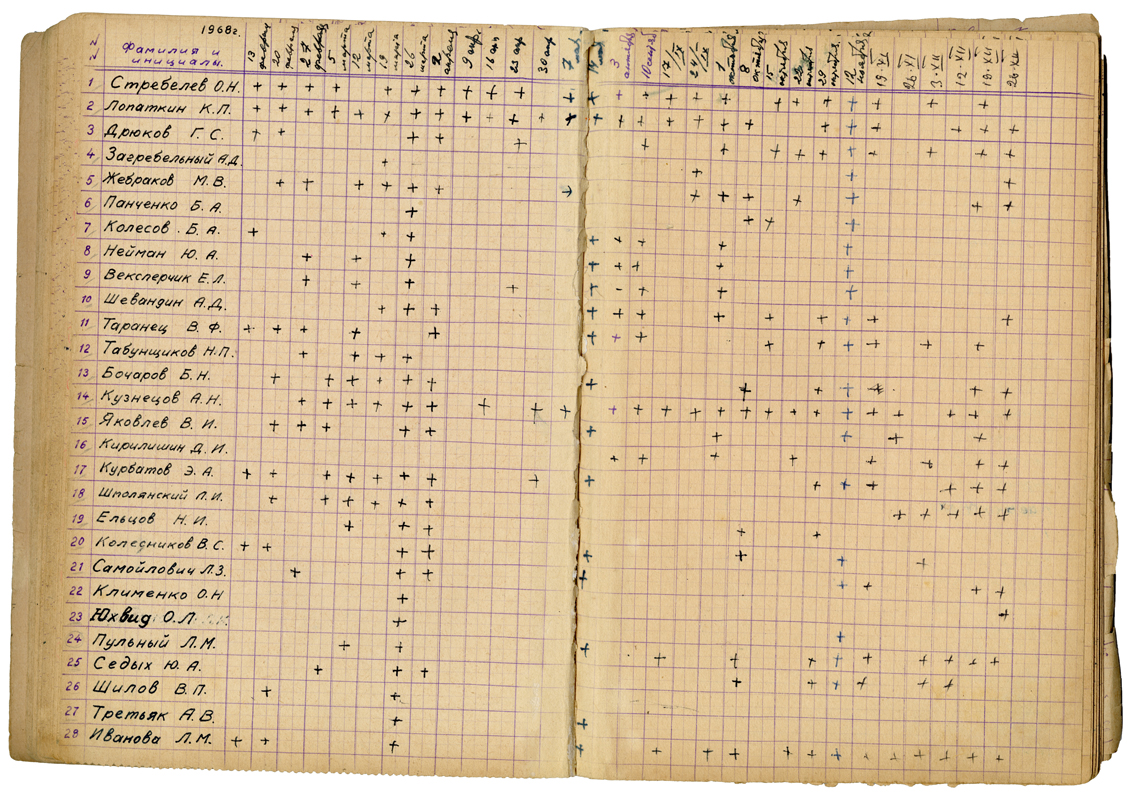 1968г.
Фамилия и
инициалы.
13 февраля
20 февраля
27 февраля
5 марта
12 марта
19 марта
26 марта
2 апреля
9 апр.
16 ап
23 апр
30 апр
7 мая
14 мая
3
10
17/IX
24/IX
1 октября
8 октября
15 октября
22 октября
29 октября
12 ноября
19·XI
26·XI
3·XII
12·XII
19·XII
26·XII
1 Стребелев О.Н.
2 Лопаткин К.П.
3 Дрюков Г.С.
4 Загребельный А.Д.
5 Жебраков М.В.
6 Панченко Б.А.
7 Колесов Б.А.
8 Нейман Ю.А.
9 Векслерчик Е.Л.
10 Шевандин А.Д.
11 Таранец В.Ф.
12 Табунщиков Н.П.
13 Бочаров Б.Н.
14 Кузнецов А.Н.
15 Яковлев В.И.
16 Кирилишин Д.И.
17 Курбатов Э.А.
18 Шполянский Л.И.
19 Ельцов Н.И.
20 Коледников В.С.
21 Самойлович Л.З.
22 Клименко О.Н
23 Юхвид О.Л
24 Пульный Л.М.
25 Седых Ю.А.
26 Шилов В.П.
27 Третьяк А.В.
28 Иванова Л.М.